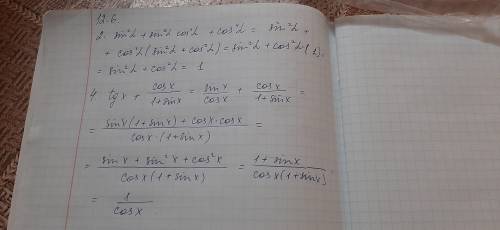 12.6.
2. sin²α + sin²α cos²α + cos⁴α = sin²α +
+ cos²α (sin²α + cos²α) = sin²α + cos²α (1) =
= sin²α + cos²α = 1
4. tg x + cosx/(1+sinx) = sinx/cosx + cosx/(1+sinx) =
= (sinx(1+sinx) + cosx·cosx)/(cosx·(1+sinx)) =
= (sinx + sin²x + cos²x)/(cosx(1+sinx)) = (1+sinx)/(cosx(1+sinx)) =
= 1/cosx